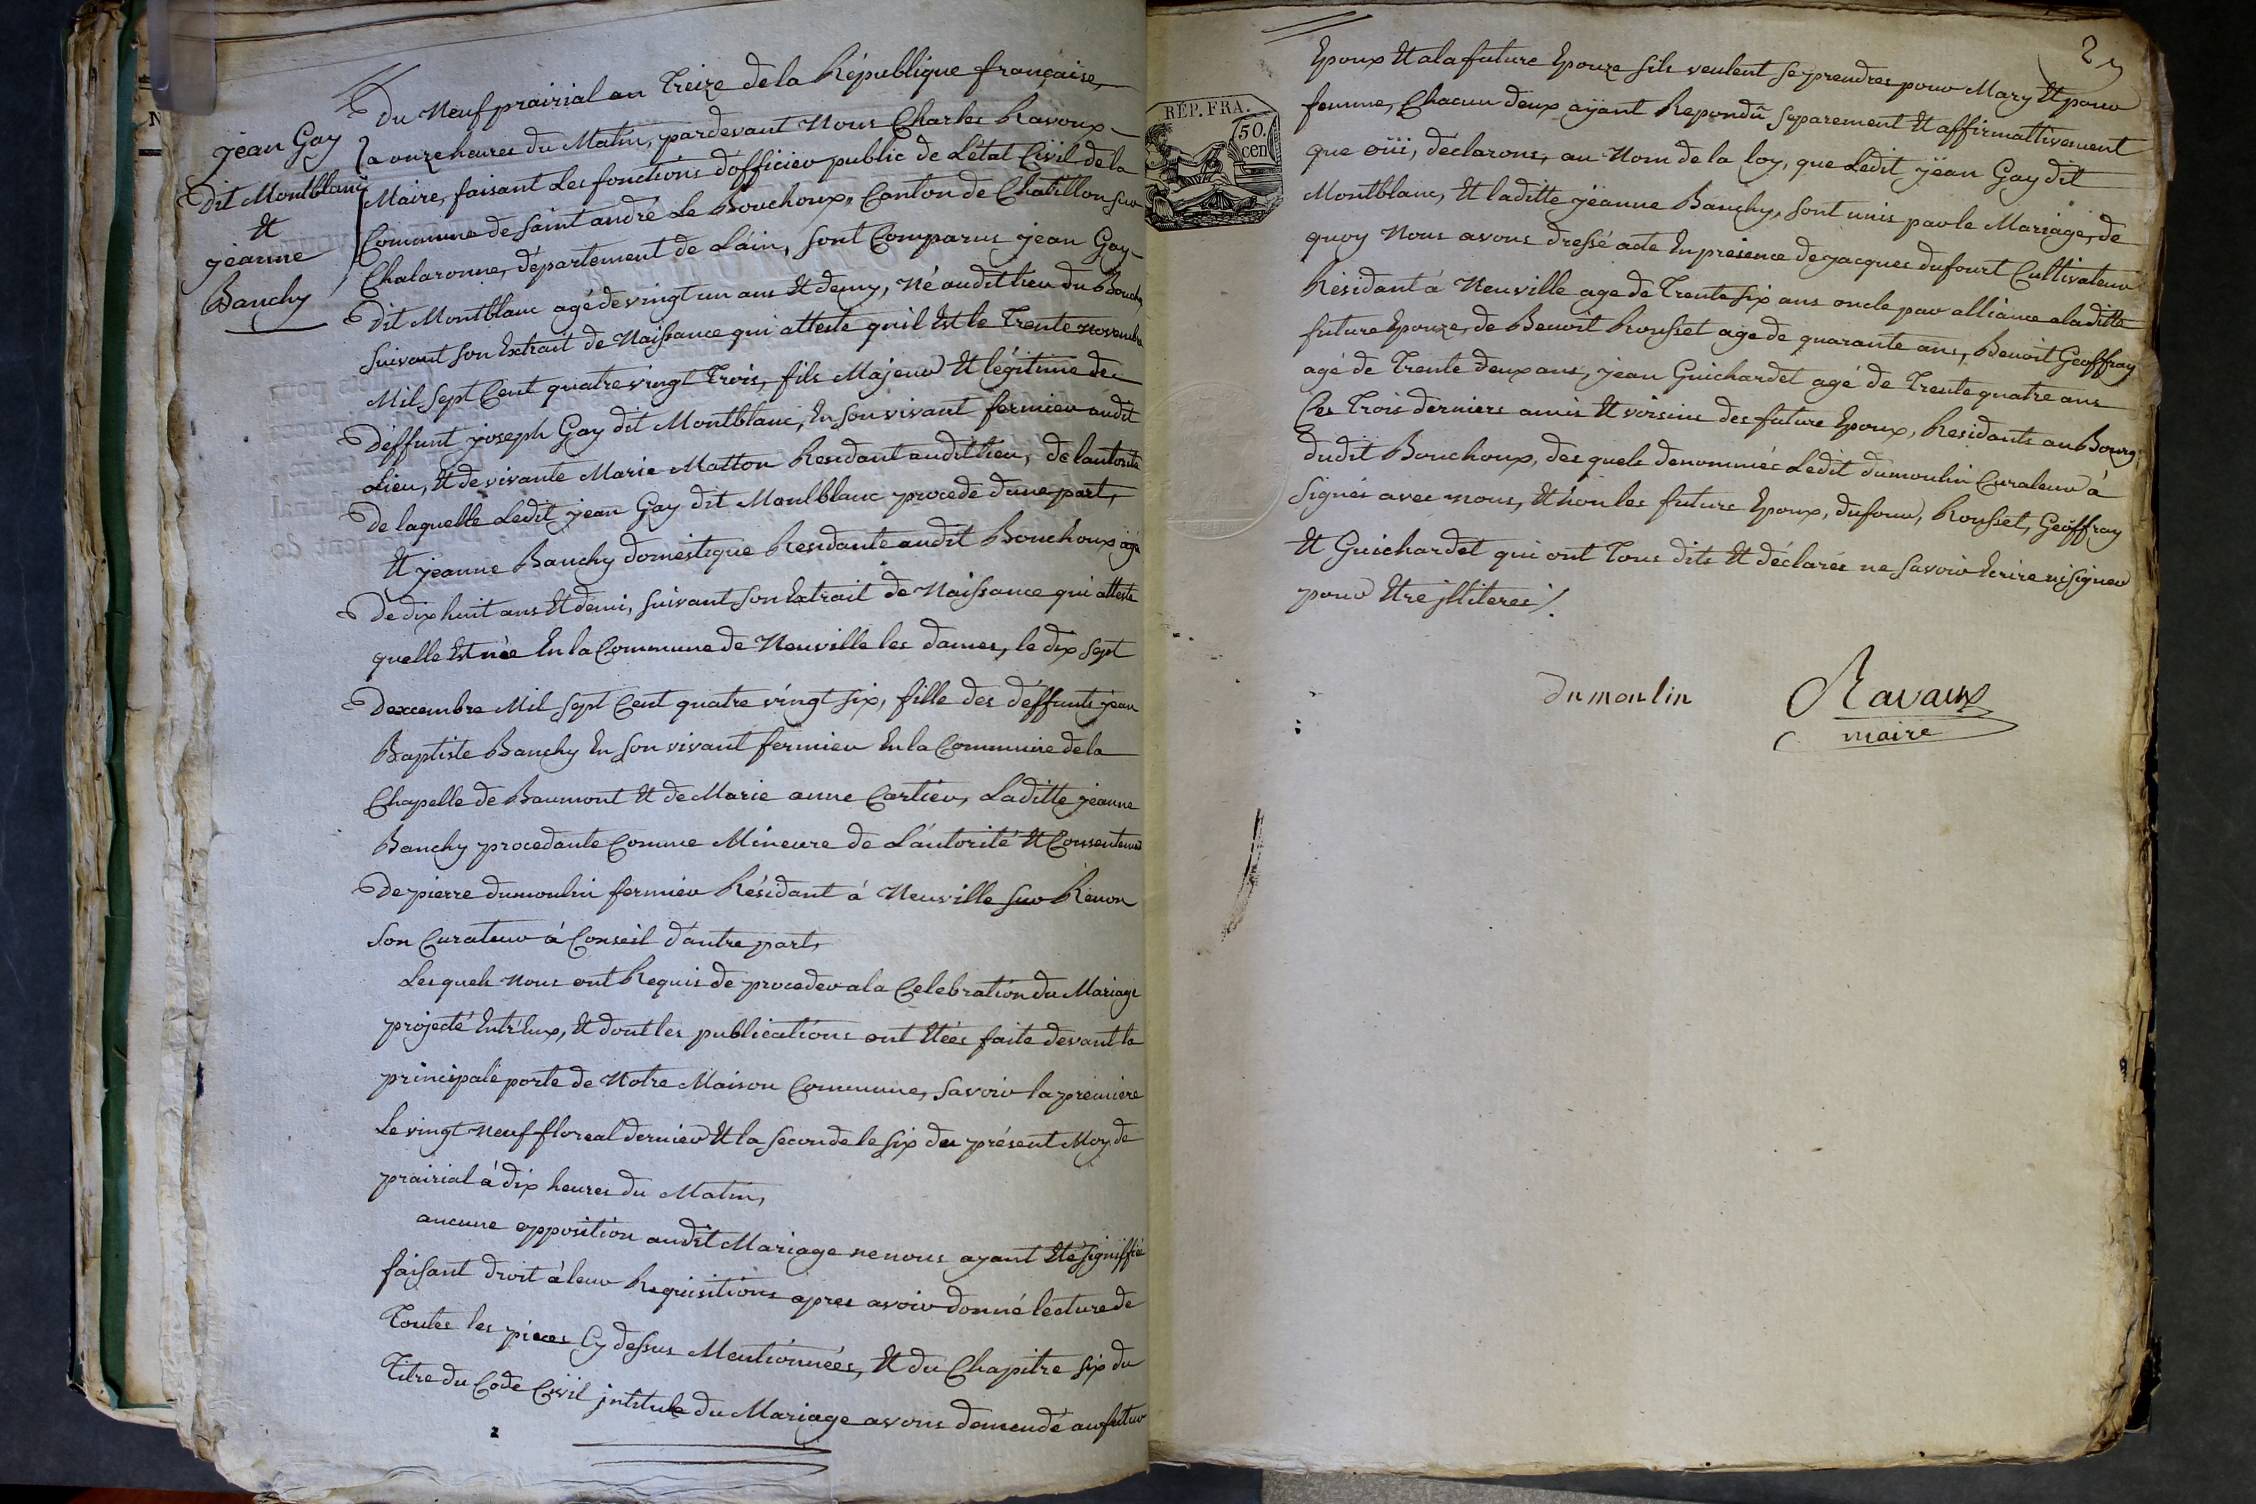 jean Gay
dit Montblanc
Et
jeanne
Banchy
Du Neuf prairial an Treize de la République française,
a onze heures du Matin, pardevant Nous Charles Ravoux
Maire, faisant Les fonctions d'officier public de L'état Civil de la
Commune de Saint andré Le Bouchoux, Canton de Chatillon sur
Chalaronne, département de L'ain, sont Comparus jean Gay
dit Montblanc agé de vingt un ans Et demy, Né audit lieu du Bouch,
suivant son Extrait de Naissance qui atteste quil Est le Trente novembre
Mil sept Cent quatre vingt Trois, fils Majeur Et légitime de
déffunt joseph Gay dit Montblanc, En son vivant fermier audit
Lieu, Et de vivante Marie Matton Residant audit lieu, de lautorité
de laquelle Ledit jean Gay dit Montblanc procede dune part,
Et jeanne Banchy domestique Residante audit Bouchoux agé
de dix huit ans Et demi, suivant son Extrait de Naissance qui atteste
quelle Est née En la Commune de Neuville les dames, le dix sept
dexcembre Mil sept Cent quatre vingt six, fille des déffunts jean
Baptiste Banchy En son vivant fermier En la Commune de la
Chapelle de Baumont Et de Marie anne Cartier, Laditte jeanne
Banchy procedante Comme Mineure de L'autorité Et Consentement
de pierre dumoulin fermier Résidant á Neuville sur Renon
son Curateur á Conseil d'autre part,
Les quels nous ont Requis de proceder a la Celebration du Mariage
projecté Entr'Eux, Et dont les publications ont Etées faite devant la
principale porte de Notre Maison Commune, savoir la premiere
Le vingt neuf floreal dernier Et la seconde le six du présent Moy de
prairial á dix heures du Matin,
aucune opposition audit Mariage ne nous ayant Eté signiffiée
faisant droit á leur Requisitions apres avoir donné lecture de
Toutes les pieces Cy dessus Mentionnées, Et du Chapitre six du
Titre du Code Civil jntitule du Mariage avons demendé au futur
2
REP. FRA.
50.
cen
Epoux Et a la future Epouze sils veulent se prendres pour Mary Et pour
femme, Chacun deux ayant Repondû separement Et affirmattivement
que oüi, déclarons, au Nom de la loy, que Ledit jëan Gay dit
Montblanc, Et laditte jëanne Banchy, sont unis par le Mariage, de
quoy Nous avons dressé acte En presence de jacques dufourt Cultivateur
Résidant á Neuville age de Trente six ans oncle par alliance a laditte
future Epouze, de Benoit Rousset age de quarante ans, Benoit Geoffray
agé de Trente deux ans, jean Guichardet agé de Trente quatre ans
Ces Trois derniers amis Et voisins des future Epoux, Residants au Bourg
dudit Bouchoux, des quels denommés Ledit dumoulin Curateur á
Signés avec nous, Et non les futurs Epoux, dufour, Rousset, Geoffray
Et Guichardet qui ont Tous dits Et déclarés ne savoir Ecrire ni signer
pour Etre jlliteres /.
dumoulin
Ravaux
maire